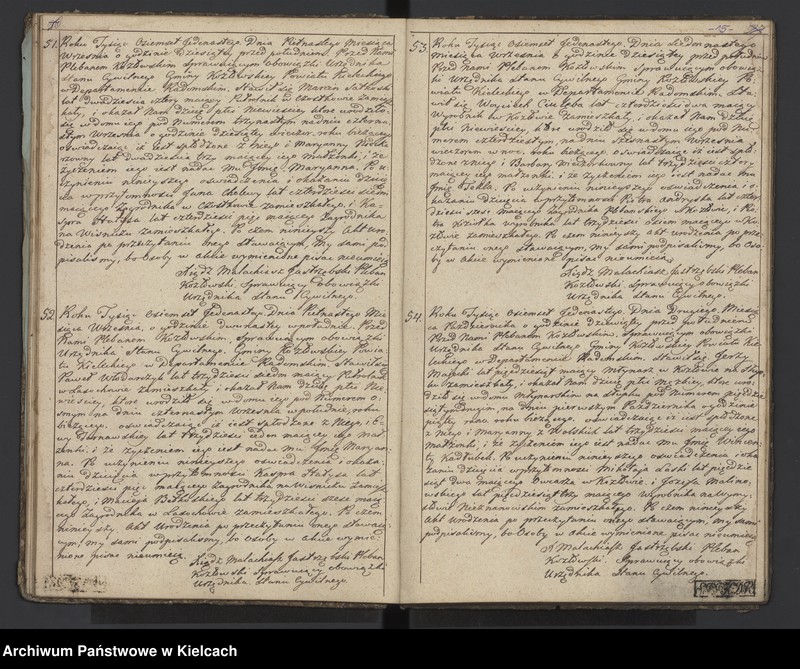 51. Roku Tysiąc Osiemset Jedenastego. Dnia Piętnastego Miesiąca
Września o godzinie Dziesiątey przed południem. Przed Nami
Plebanem Kozłowskim Sprawuiącym obowiązki Urzędnika
Stanu Cywilnego Gminy Kozłowskiey Powiatu Kieleckiego
w Departamencie Radomskim, Stawił się Marcin
lat dwadzieścia cztery maiący
kały, i okazał Nam dziecię płci Niewieściey które urodziło
się w domu iego pod Numerem trzynastym na dniu czterna
stym Września o godzinie dziesiątey wieczor, roku bieżącego
oświadczaiąc iż iest spłodzone z Niego i Maryanny
lat dwadzieścia trzy maiącey iego małżonki, i że
życzeniem iego iest nadać mu Imię Maryanna. Po u-
czynieniu ninieyszego oświadczenia i okazaniu dziecię-
cia w przytomności Jana lat czterdzieści siedm
maiącego zagrodnika w zamieszkałego. i Ka-
spra Hatysa lat czterdzieści pięć maiącego Zagrodnika
na Wiśnicku zamieszkałego. Po czem ninieyszy Akt uro-
dzenia po przeczytaniu onego stawaiącym, My sami pod
pisaliśmy, bo Osoby w Akcie wymienione pisać nieumieią
Xiądz Malachiasz Jastrzębski Pleban
Kozłowski. Sprawuiący obowiązki
Urzędnika Stanu Cywilnego.
52. Roku Tysiąc Osiemset Jedenastego. Dnia Piętnastego Mie
siąca Września, o godzinie dwunastey w południe. Przed
Nami Plebanem Kozłowskim, Sprawuiącym obowiązki
Urzędnika Stanu Cywilnego. Gminy Kozłowskiey Powia
tu Kieleckiego w Departamencie Radomskim, Stawił się
Paweł Włodarczyk lat trzydzieści siedm maiący
w Lasochowie zamieszkały, i okazał Nam dziecię płci Nie
wieściey, które urodziło się w domu iego pod Numerem o-
smym na dniu czternastym Września w południe, roku
bieżącego. oświadczaiąc iż iest spłodzone z Niego, i E-
wy lat trzydzieści ieden maiącey iego mał
żonki. i że życzeniem iego iest nadać mu Imię Maryan
na. Po uczynieniu ninieyszego oświadczenia i okaza-
niu dziecięcia w przytomności Kaspra Hatysa lat
czterdzieści pięć maiącego Zagrodnika na Wiśnicku zamiesz
kałego, i Macieia lat trzydzieści sześć maią-
cego Zagrodnika w Lasochowie zamieszkałego. Po czem
ninieyszy Akt Urodzenia po przeczytaniu onego stawaią-
cym, My sami podpisaliśmy, bo Osoby w Akcie wymie-
nione pisać nieumieią. Xiądz Malachiasz Jastrzębski Pleban
Kozłowski Sprawuiący obowiązki
Urzędnika Stanu Cywilnego
-15-
53. Roku Tysiąc Osiemset Jedenastego. Dnia Siedmnastego
miesiąca Września o godzinie dziesiątey przed południem
Przed Nami Plebanem Kozłowskim Sprawuiącym obowiąz
ki Urzędnika Stanu Cywilnego Gminy Kozłowskiey Po
wiatu Kieleckiego w Departamencie Radomskim. Sta
wił się Woyciech lat czterdzieści dwa maiący
Wyrobnik w Kozłowie zamieszkały, i okazał Nam dziecię
płci Niewieściey, które urodziło się w domu iego pod Nu
merem czterdziestym, na dniu Szesnastym Września
wieczorem w nocy, roku bieżącego, oświadczaiąc iż iest spło
dzone z niego i Barbary lat trzydzieści cztery
maiącey iego małżonki, i że życzeniem iego iest nadać mu
Imię Tekla. Po uczynieniu ninieyszego oświadczenia i o-
kazaniu dziecięcia w przytomności Piotra lat czter
dzieści sześć maiącego Zagrodnika Plebańskiego w Kozłowie, i Ka
lat trzydzieści osiem maiącego w Ko
złowie zamieszkałego. Po czem ninieyszy akt urodzenia po prze
czytaniu onego stawaiącym, My sami podpisaliśmy, bo Oso
by w Akcie wymienione pisać nieumieią
Xiądz Malachiasz Jastrzębski Pleban
Kozłowski Sprawuiący obowiązki
Urzędnika Stanu Cywilnego.
54. Roku Tysiąc Osiemset Jedenastego. Dnia Drugiego Miesią
ca Października o godzinie dziewiątey przed południem.
Przed Nami Plebanem Kozłowskim, Sprawuiącym obowiązki
Urzędnika Stanu Cywilnego Gminy Kozłowskiey Powiatu Kie
leckiego w Departamencie Radomskim, Stawił się Jerzy
lat pięćdziesiąt maiący Młynarz w Kozłowie na Słup
ku zamieszkały, i okazał Nam dziecię płci męzkiey, które uro
dziło się w domu Młynarskim na Słupku pod Numerem pięćdzie
siątym, na dniu pierwszym Października o godzinie
piątey rano roku bieżącego, oświadczaiąc iż iest spłodzone
z niego i Maryanny z lat trzydzieści maiącey iego
małżonki, i że życzeniem iego iest nadać mu Imię Wincen
ty Kadłubek. Po uczynieniu ninieyszego oświadczenia i oka
zaniu dziecięcia w przytomności Mikołaja lat pięćdzie
siąt dwa maiącego w Kozłowie, i Jozefa Malino
wskiego lat pięćdziesiąt trzy maiącego Wyrobnika
zamieszkałego. Po czem ninieyszy
Akt urodzenia po przeczytaniu onego stawaiącym, My sami
podpisaliśmy, bo Osoby w Akcie wymienione pisać nieumieią
X Malachiasz Jastrzębski Pleban
Kozłowski. Sprawuiący obowiązki
Urzędnika Stanu Cywilnego.
Archiwum Państwowe w Kielcach